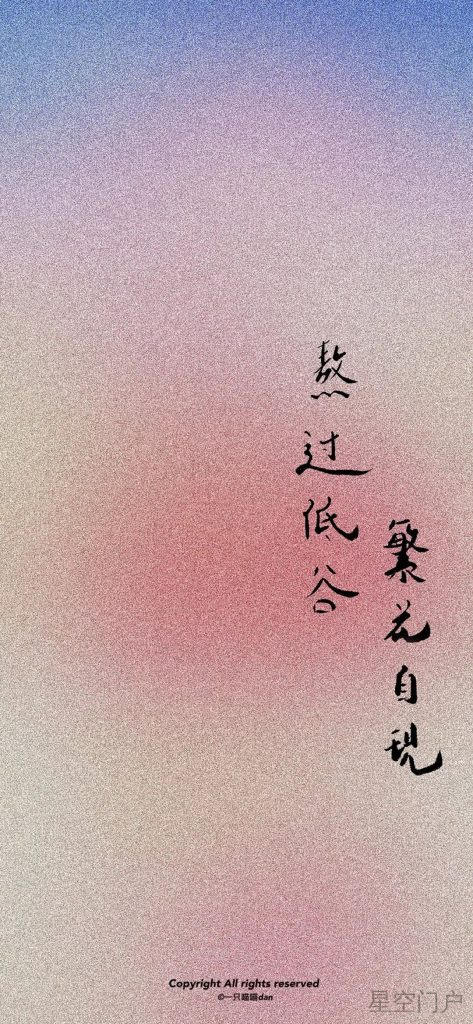 熬过低谷
繁花自现
Copyright All rights reserved
©一只喵喵dan
星空门户